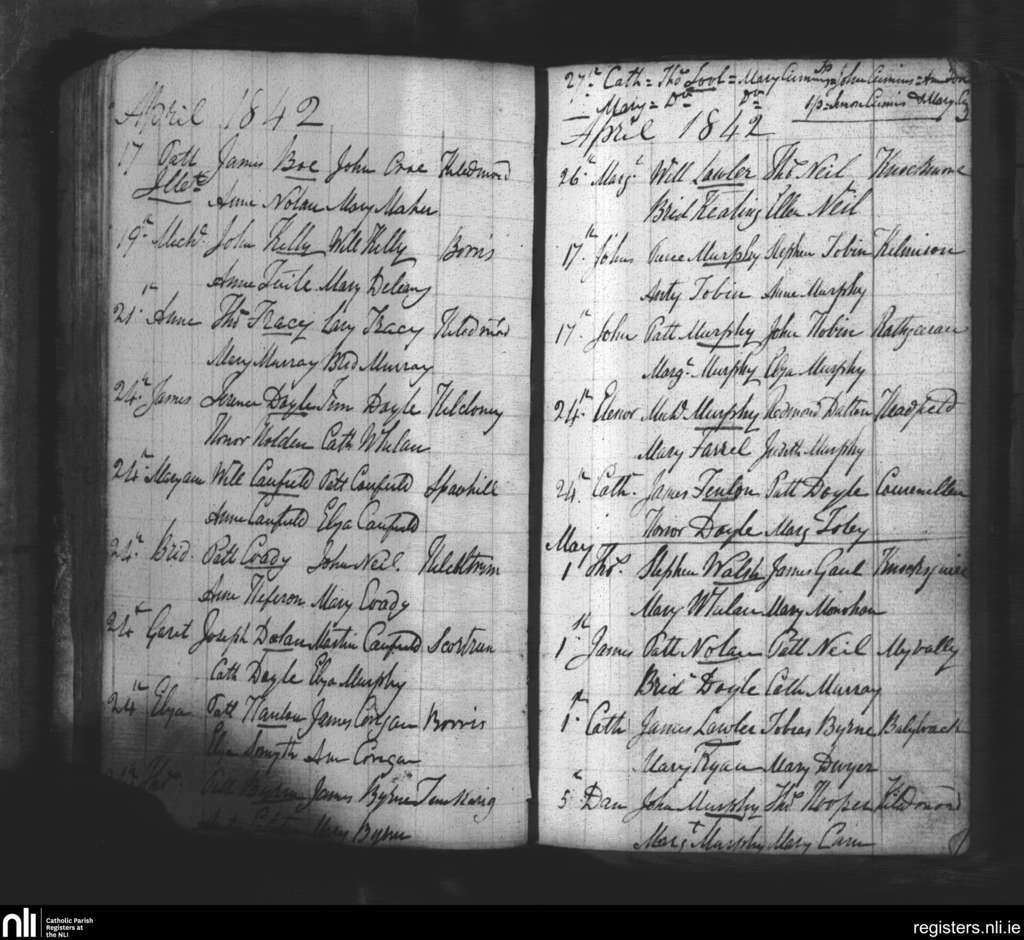 April 1842
17 Patt James Boe John Croe Kiledmond
Illete Anne Nolan Mary Maher
19th Michl. John Kelly Will Kelly Borris
Anne Tuile Mary Deleany
21th Anne Thos Tracy Tracy Kiledmd
Mary Murray Brid Murray
24th James Doyle Jim Doyle Kilcloney
Honor Holden Cath Whelan
24th Maryann Will Caufield Patt Caufield Spahill
Anne Caufield Eliza Caufield
24th Brid. Patt Coady John Neil.
Anne Mary Coady
24th Garet Joseph Dolan Martin Caufield Scortrean
Cath Doyle Eliza Murphy
24th Eliza Patt Hanlon James Corigan Borris
Eliza Smyth Ann Corigan
Thos Patt Byrne James Byrne
Mary Byrne
27th Cath = Thos Tool = Mary Cummins John Cumins =
Mary = Do Do Cumins & Mary
April 1842
26th Marg. Will Lawler Thos Neil
Brid Keating Ellen Neil
17th Johns Pierce Murphy Stephen Tobin Kilmison
Anty Tobin Anne Murphy
17th John Patt Murphy John Tobin Rathgeran
Margt Murphy Eliza Murphy
24th Elenor Michl. Murphy Redmond Dalton Headfield
Mary Farrel Judith Murphy
24th Cath. James Fenlon Patt Doyle Coumellen
Honor Doyle Marg Foley
May
1 Thos. Stephen Walsh James Gaul
Mary Whelan Mary Monohan
1st James Patt Nolan Patt Neil Myvally
Bridt Doyle Cath Murray
1st Cath James Lawler Tobias Byrne
Mary Ryan Mary Dwyer
5th Dan John Murphy Thos Hooper Kiledmond
Margt Murphy Mary
nli
Catholic Parish
Registers at
the NLI
registers.nli.ie